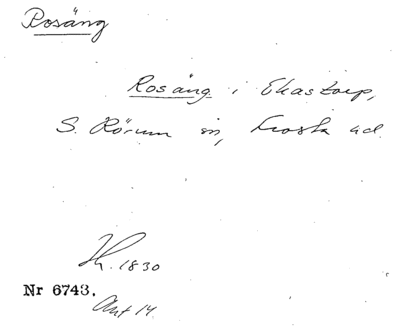 Rosäng
Rosäng i Ekastorp,
S. Rörum sn, Frosta hd.
Hf. 1830
Nr 6743.
Ant 14.